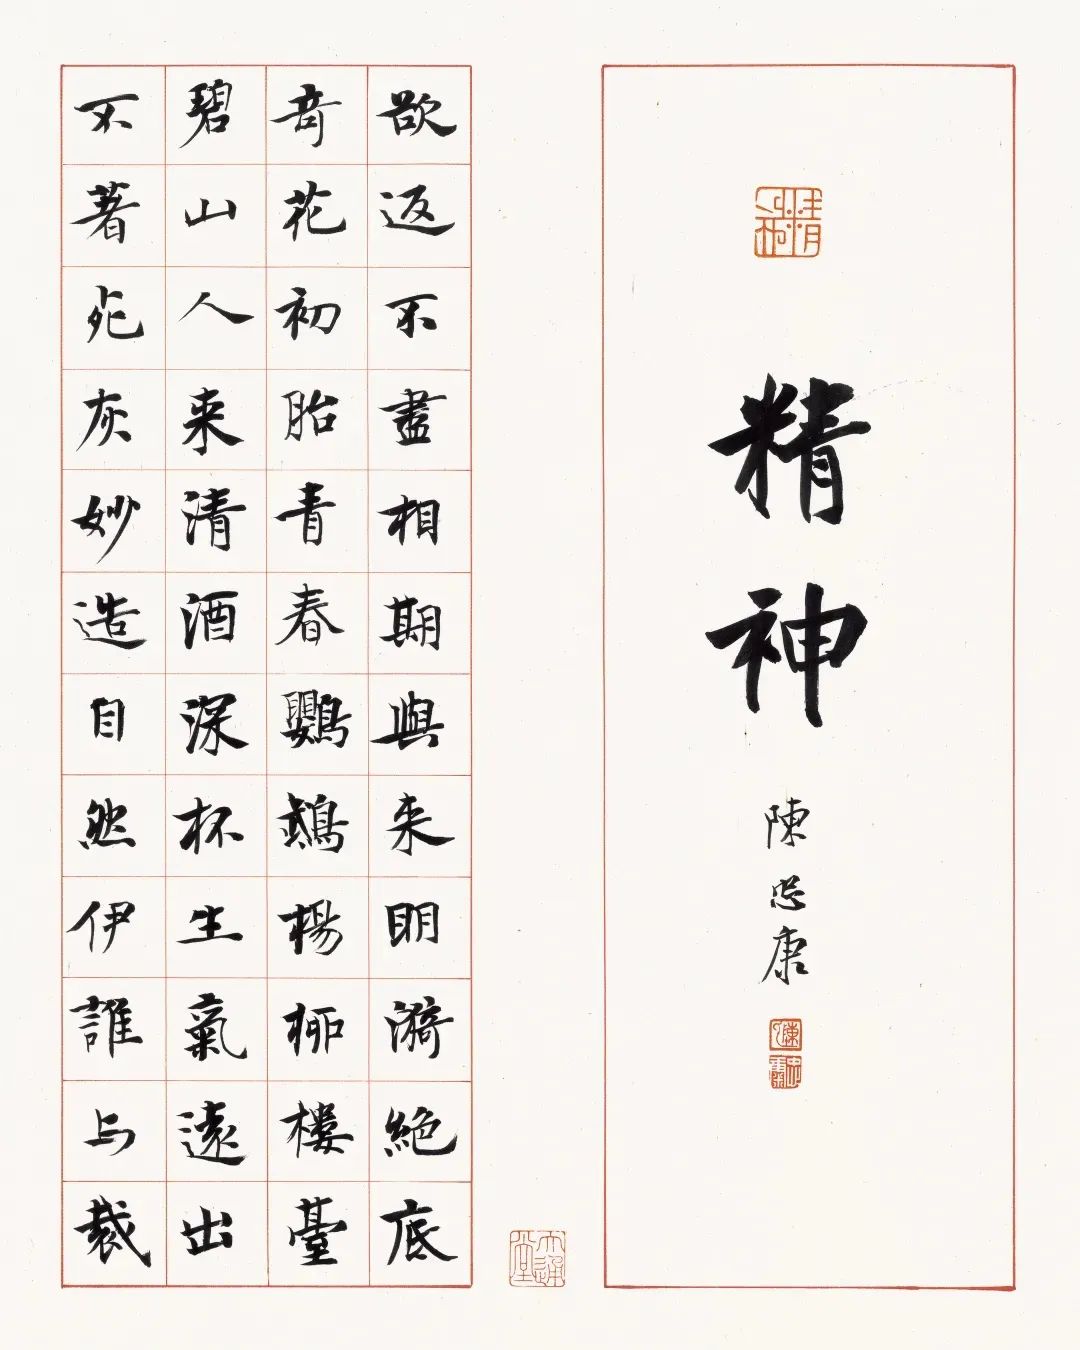 精神
精神
陳忠康
欲返不盡相期與来明漪絕底
奇花初胎青春鸚鵡楊柳樓臺
碧山人来清酒深杯生氣遠出
不著死灰妙造自然伊誰与裁